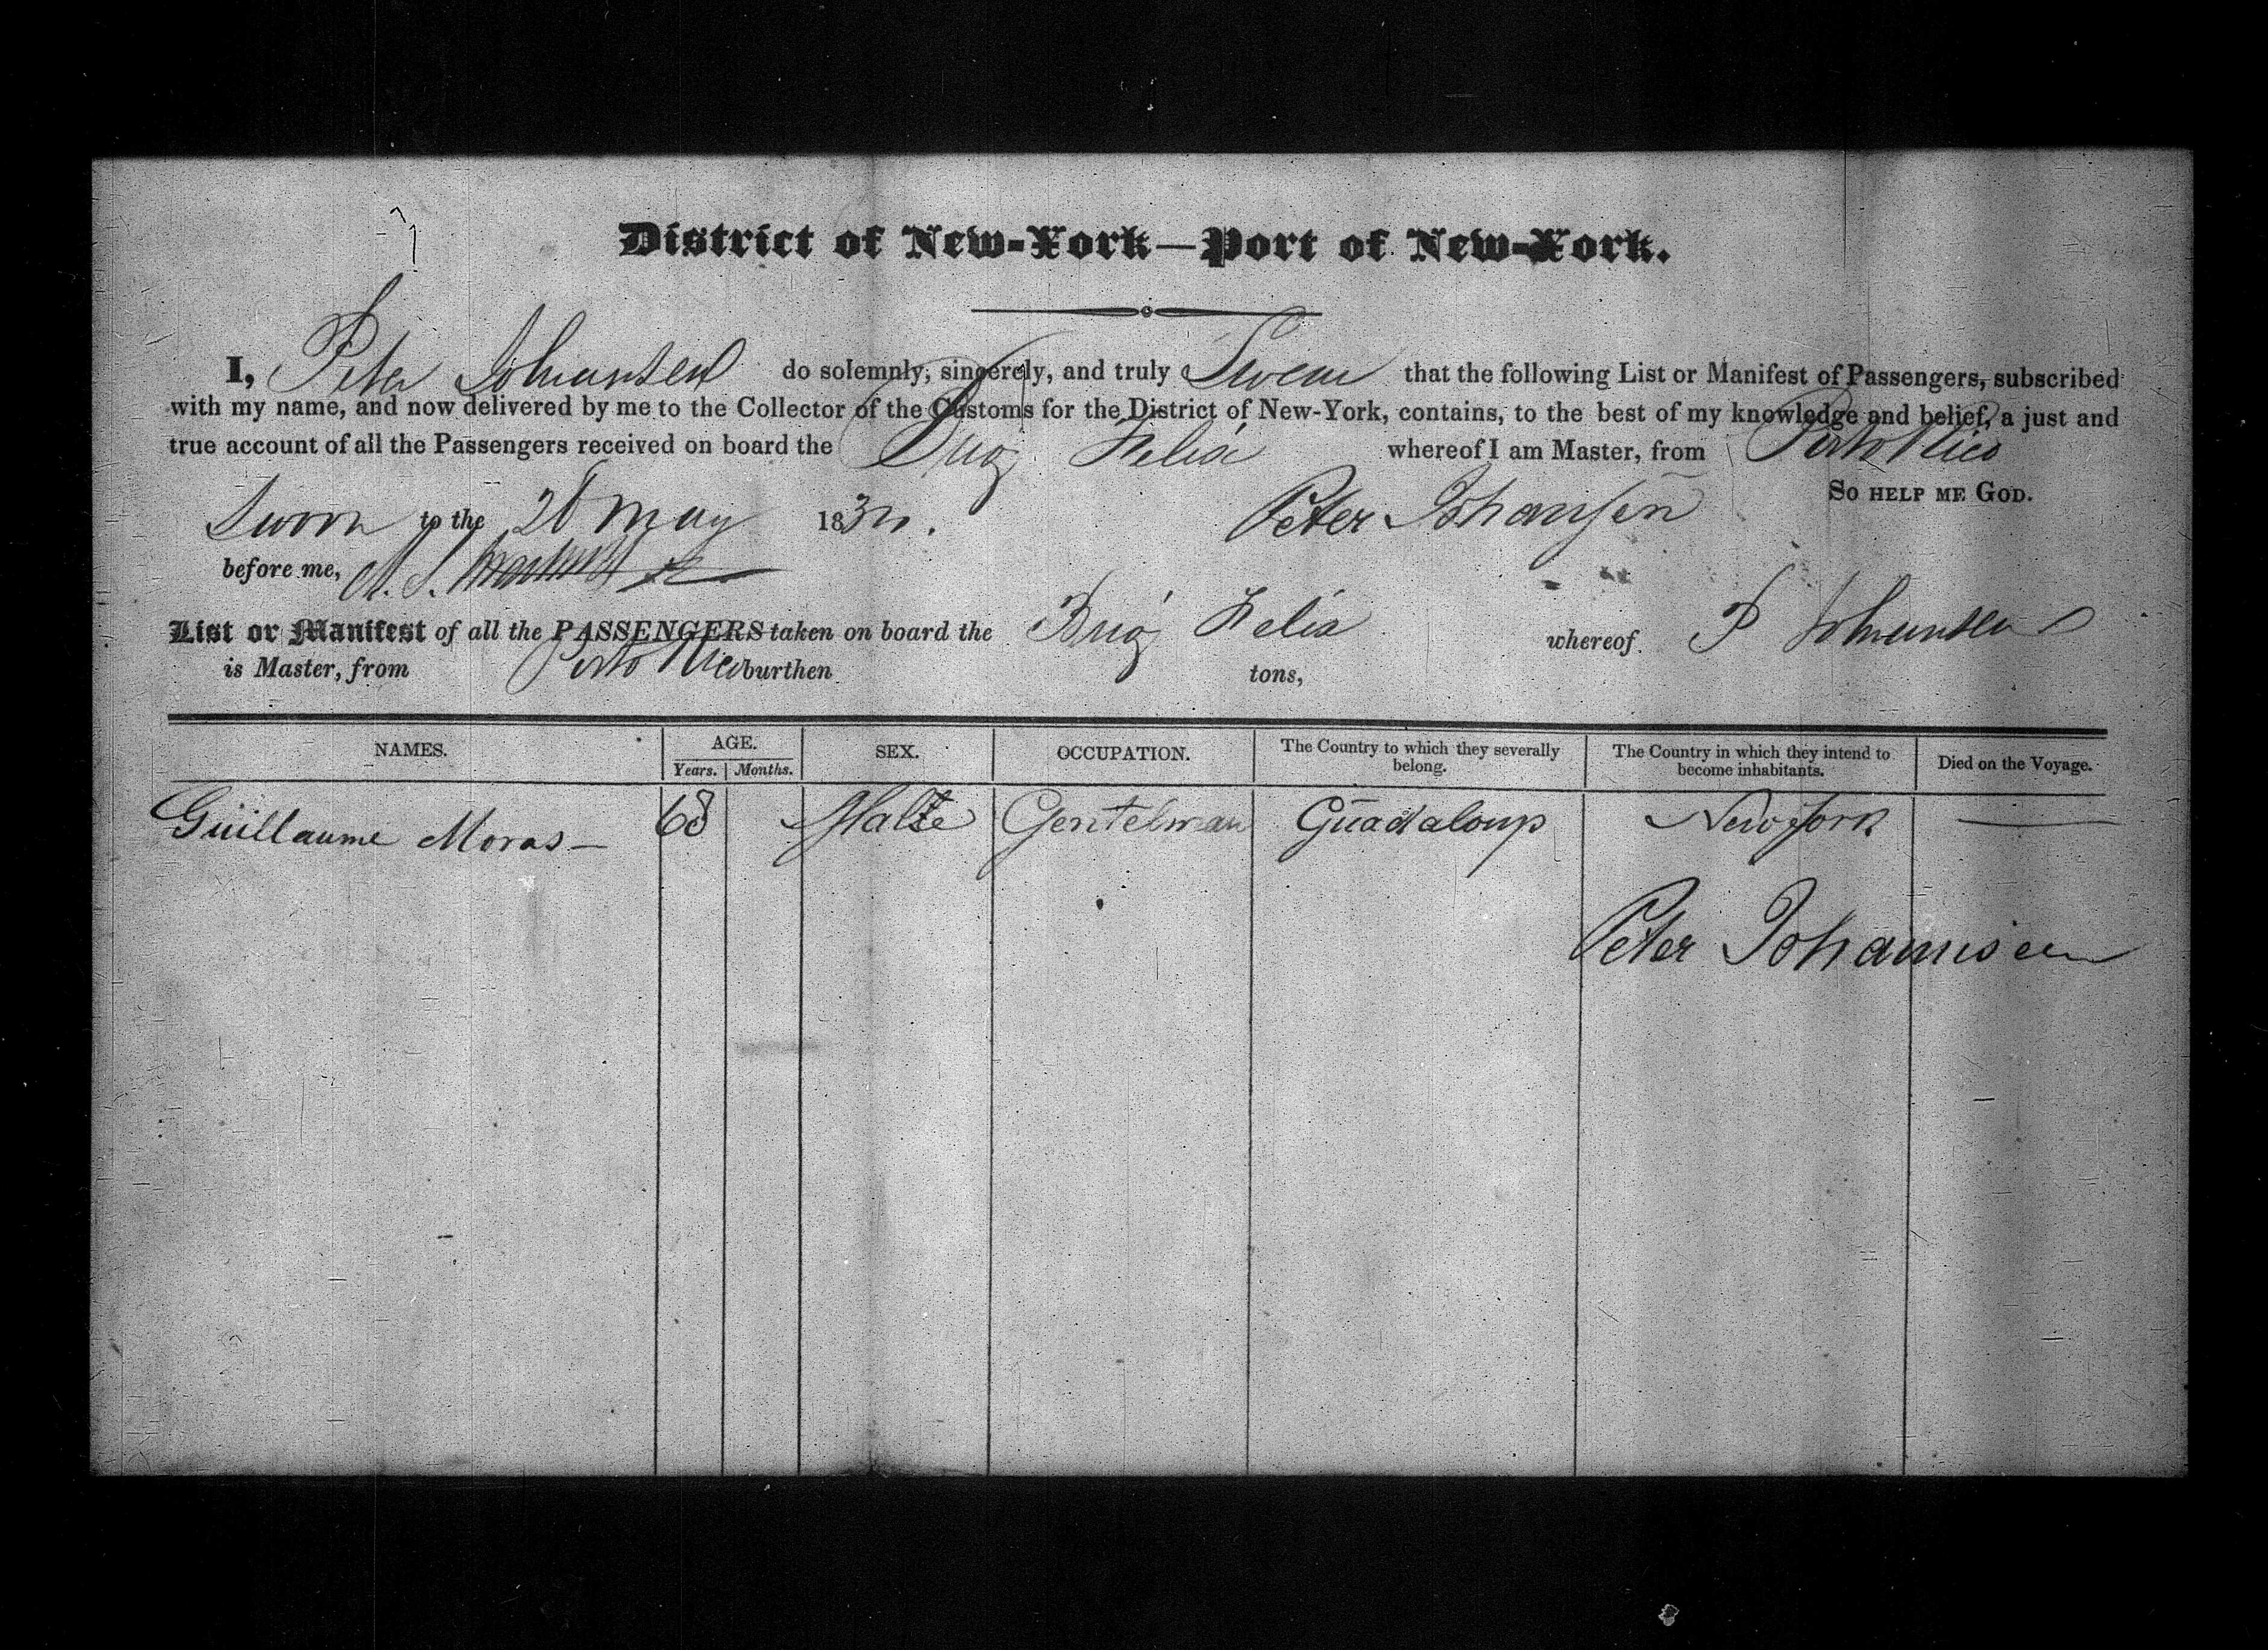 District of New-York—Port of New-York.
I, Peter Johansen do solemnly, sincerely, and truly Swear that the following List or Manifest of Passengers, subscribed
with my name, and now delivered by me to the Collector of the Customs for the District of New-York, contains, to the best of my knowledge and belief, a just and
true account of all the Passengers received on board the Brig Helia whereof I am Master, from Porto Rico
So HELP ME GOD.
Sworn to the 28 May 183 Peter Johansen
before me,
List or Manifest of all the PASSENGERS taken on board the Brig Helia whereof P Johansen
is Master, from Porto Rico burthen tons,
NAMES. AGE. SEX. OCCUPATION. The Country to which they severally belong. The Country in which they intend to become inhabitants. Died on the Voyage.
Years. Months.
Guillaume Moras — 68 Malte Gentelman Guadaloup New York —
Peter Johannsen